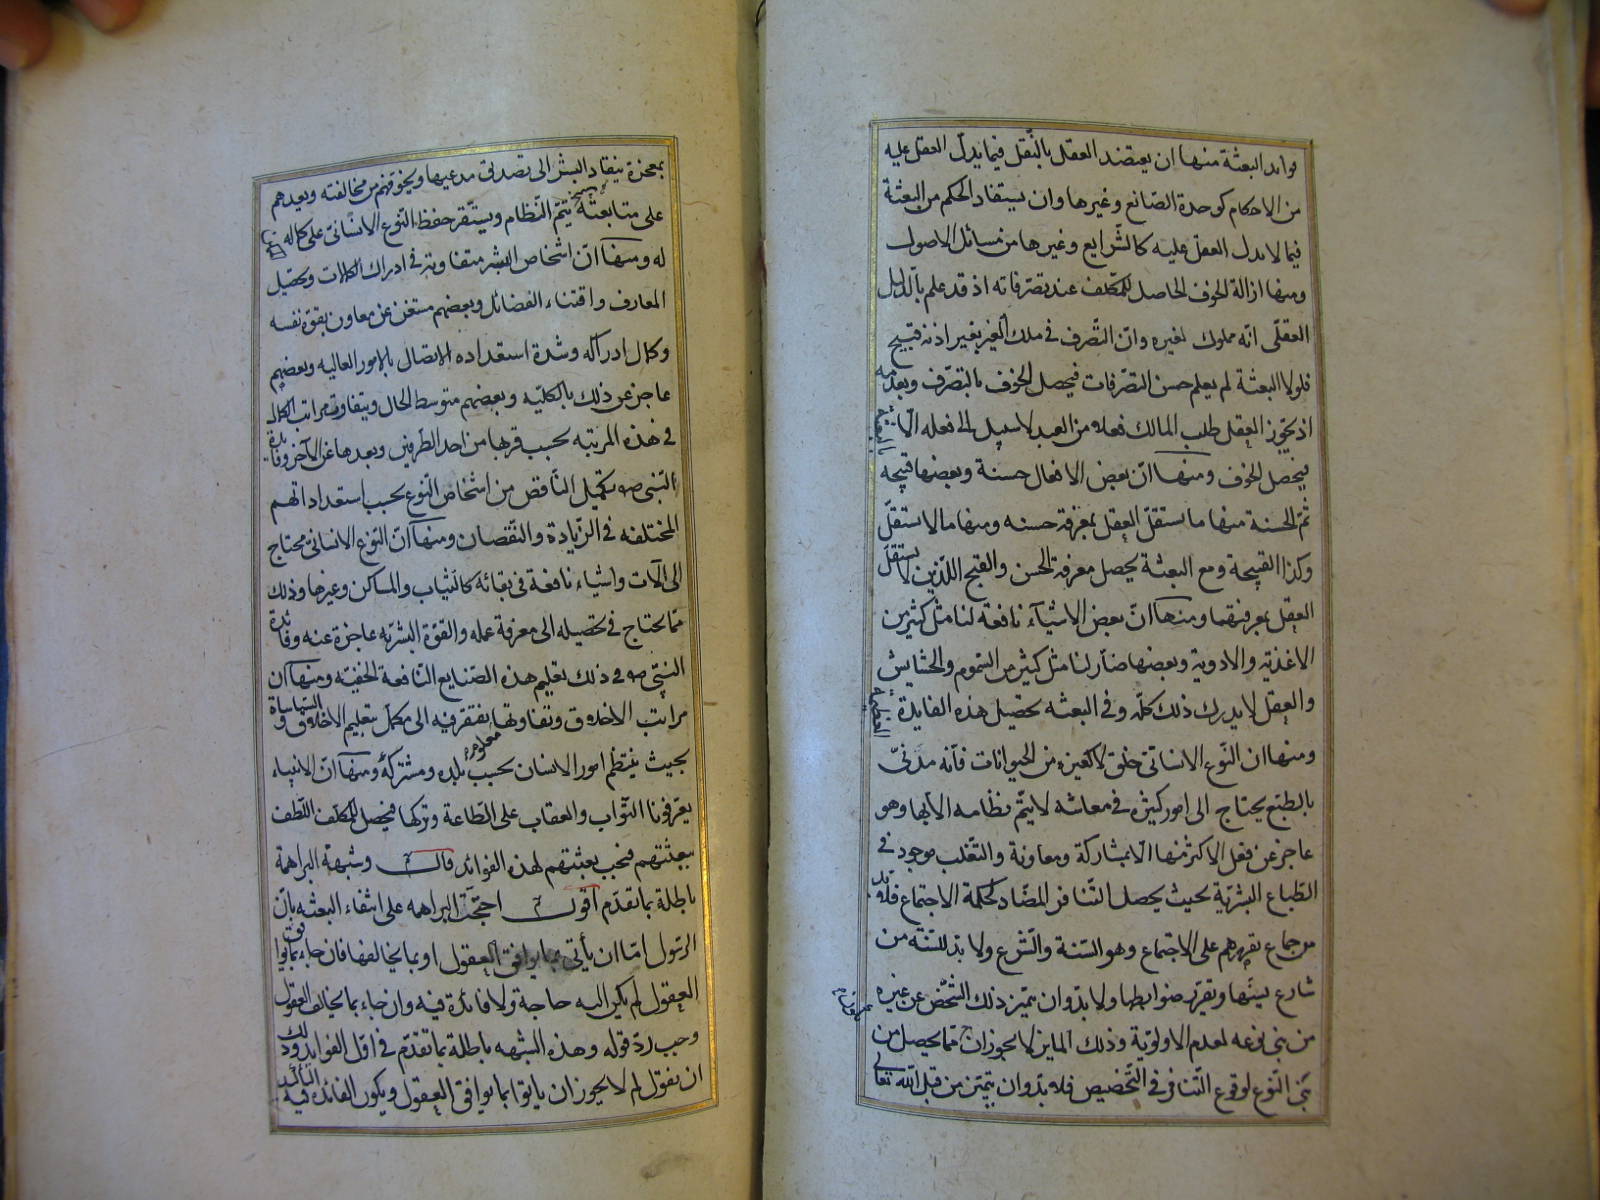 فوايد البعثة منها ان يعتضد العقل بالنّقل فيما يدلّ العقل عليه
من الاحكام كوحدة الصّانع وغيرها وان يستفاد الحكم من البعثة
فيما لا يدل العقل عليه كالشّرايع وغيرها من مسائل الاصول
ومنها ازالة الخوف الحاصل للمكلّف عند تصرّفاته اذ قد علم بالدّليل
العقلىّ انّه مملوك لغيره وانّ التّصرف فى ملك الغير بغير اذنه قبيح
فلولا البعثة لم يعلم حسن التصّرفات فيحصل الخوف بالتصرّف وبعدمه
اذ يجوّز العقل طلب المالك فعلا من العبد لا سبيل الى فعله الّا بالبعثة
فيحصل الخوف ومنها انّ بعض الافعال حسنة وبعضها قبيحة
ثمّ الحسنة منها ما يستقلّ العقل بمعرفة حسنه ومنها ما لا يستقلّ
وكذا القبيحة ومع البعثة يحصل معرفة الحسن والقبح اللّذين لا يستقلّ
العقل بمعرفتهما ومنها انّ بعض الاشيآء نافعة لنا مثل كثير من
الاغذية والادوية وبعضها ضارّ لنا مثل كثير من السّموم والحشايش
والعقل لا يدرك ذلك كلّه وفى البعثه تحصيل هذه الفايدة العظيمة
ومنها ان النّوع الانسانىّ خلق لا كغيره من الحيوانات فانّه مدنىّ
بالطّبع يحتاج الى امور كثيره فى معاشه لا يتمّ نظامه الّا بها وهو
عاجز عن فعل الاكثر منها الّا بمشاركة ومعاونة والتّغلب موجود فى
الطّباع البشريّة بحيث يحصل التّنافر المضاد لحكمة الاجتماع فلا بدّ
من جامع يقهرهم على الاجتماع وهو السّنة والشّرع ولا بدّ للسّنّه من
شارع يسنّها ويقرّر ضوابطها ولا بدّ وان يتميّز ذلك الشّخص عن غيره
من بنى نوعه لعدم الاولويّة وذلك المايز لا يجوز ان يكون ممّا يحصل من
بنى النّوع لوقوع التّنافر فى التّخصيص فلا بدّ وان يتميّز من قبل اللّه تعالى
بمعجزة ينقاد البشر الى تصديق مدعيها ويخوّفهم من مخالفته ويعدهم
على متابعته بحيث يتمّ النّظام ويستقر حفظ النّوع الانسانىّ على كماله الممكن
له ومنها انّ اشخاص البشر متفاوته فى ادراك الكمالات وتحصيل
المعارف واقتناء الفضائل وبعضهم مستغن عن معاون بقوّة نفسه
وكمال ادراكه وشدة استعداده للاتصال بالامور العاليه وبعضهم
عاجز عن ذلك بالكليّه وبعضهم متوسط الحال ويتفاوت مراتب الكمال
فى هذه المرتبه بحسب قربها من احد الطّرفين وبعدها عن الآخر وفائدة
النّبى ص تكميل النّاقص من اشخاص النّوع بحسب استعداداتهم
المختلفه فى الزّيادة والنّقصان ومنها انّ النّوع الانسانىّ محتاج
الى آلات واشياء نافعة فى بقائه كالثياب والمساكن وغيرها وذلك
ممّا يحتاج فى تحصيله الى معرفة عمله والقوّة البشريّه عاجزة عنه وفائدة
النبىّ ص فى ذلك تعليم هذه الصّنايع النّافعة الخفيّه ومنها ان
مراتب الاخلاق وتفاوتها يفتقر فيه الى مكمّل بتعليم الاخلاق والسّياساة
بحيث ينتظم امور الانسان بحسب بلده ومنزله ومنها انّ الانبياء
يعرّفونا الثّواب والعقاب على الطّاعة وتركها فيحصل للمكلّف اللّطف
ببعثتهم فيجب بعثتهم لهذه الفوائد قال وشبهة البراهمة
باطلة بما تقدّم اقول احتجّت البراهمه على انتفاء البعثه بانّ
الرّسول امّا ان يأتى بما يوافق العقول او بما يخالفها فان جاء بما يوافق
العقول لم يكن اليه حاجة ولا فائدة فيه وان جاء بما يخالف العقول
وجب ردّ قوله وهذه الشبهه باطلة بما تقدّم فى اوّل الفوايد وذلك
ان نقول لم لا يجوز ان يأتوا بما يوافق العقول ويكون الفائدة فيه التأكيد